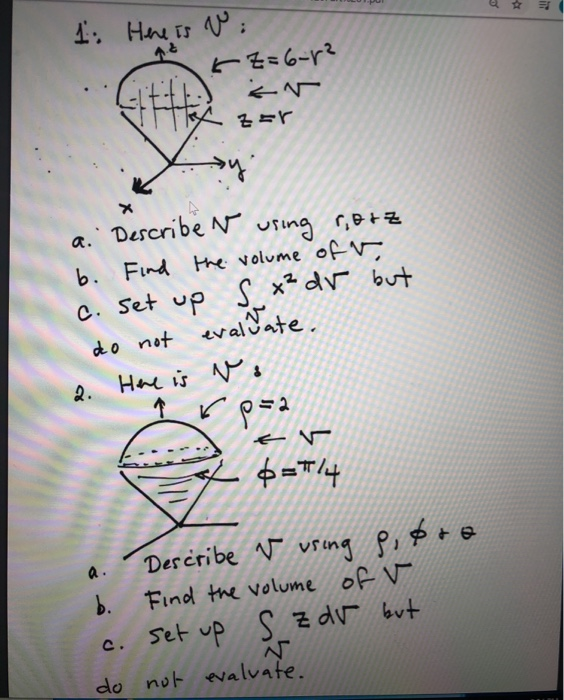 1: Here is V:
z
z=6-r²
V
z=r
y
x
a. Describe V using r, θ + z
b. Find the volume of V.
c. Set up ∫ x² dV but
V
do not evaluate.
2. Here is V:
ρ=2
V
φ=π/4
a. Describe V using ρ, φ + θ
b. Find the volume of V
c. Set up ∫ z dV but
V
do not evaluate.